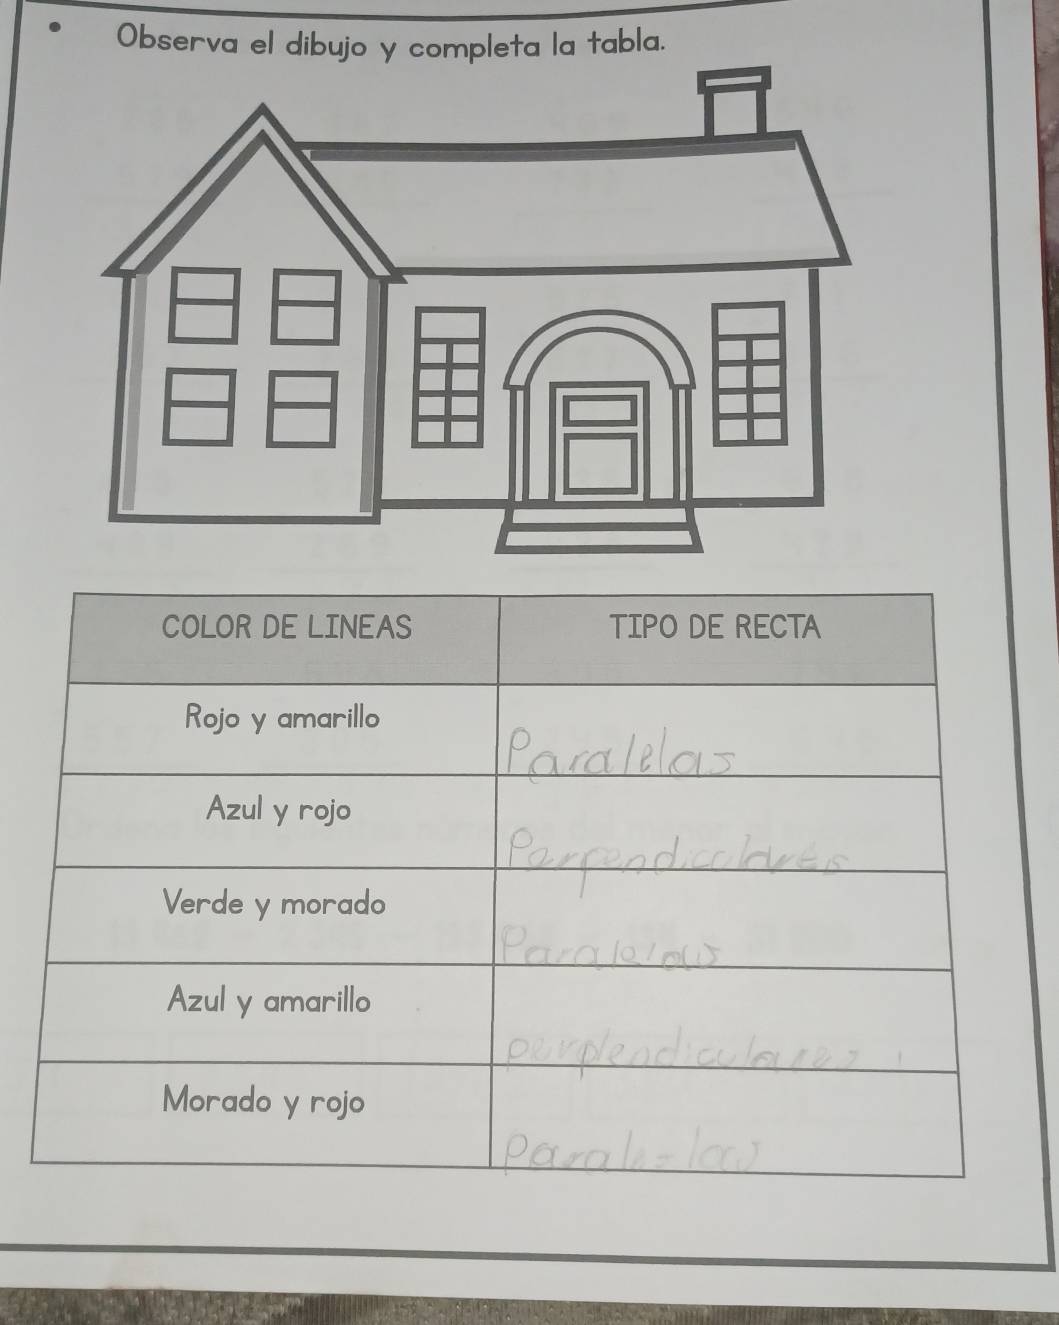 • Observa el dibujo y completa la tabla.
COLOR DE LINEAS TIPO DE RECTA
Rojo y amarillo Paralelas
Azul y rojo Parpendiculares
Verde y morado Paralelas
Azul y amarillo perplendiculares
Morado y rojo paralelas